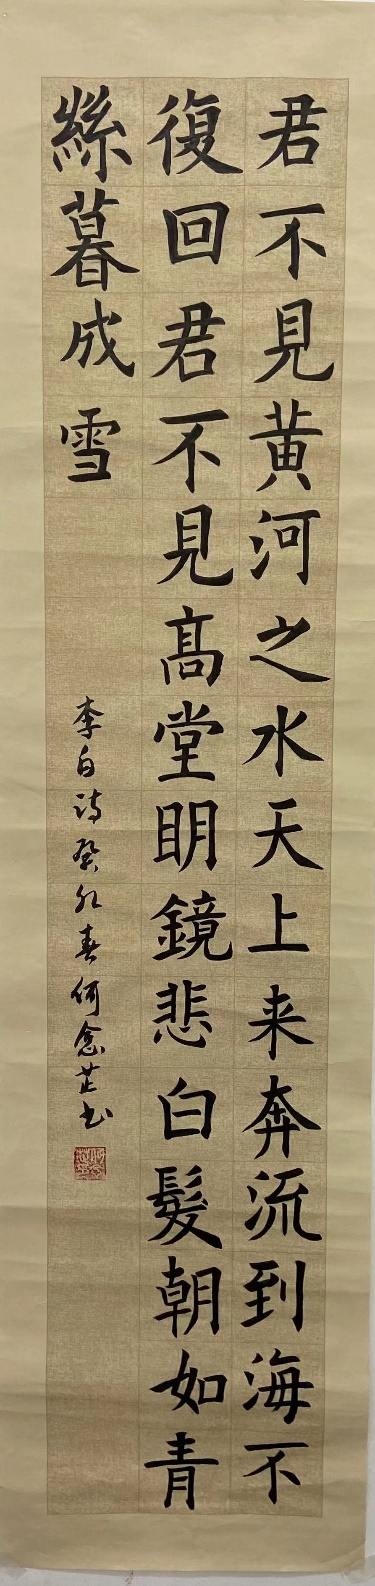 君不見黃河之水天上来奔流到海不
復回君不見髙堂眀鏡悲白髮朝如青
絲暮成雪
李白詩癸卯春何念芷书